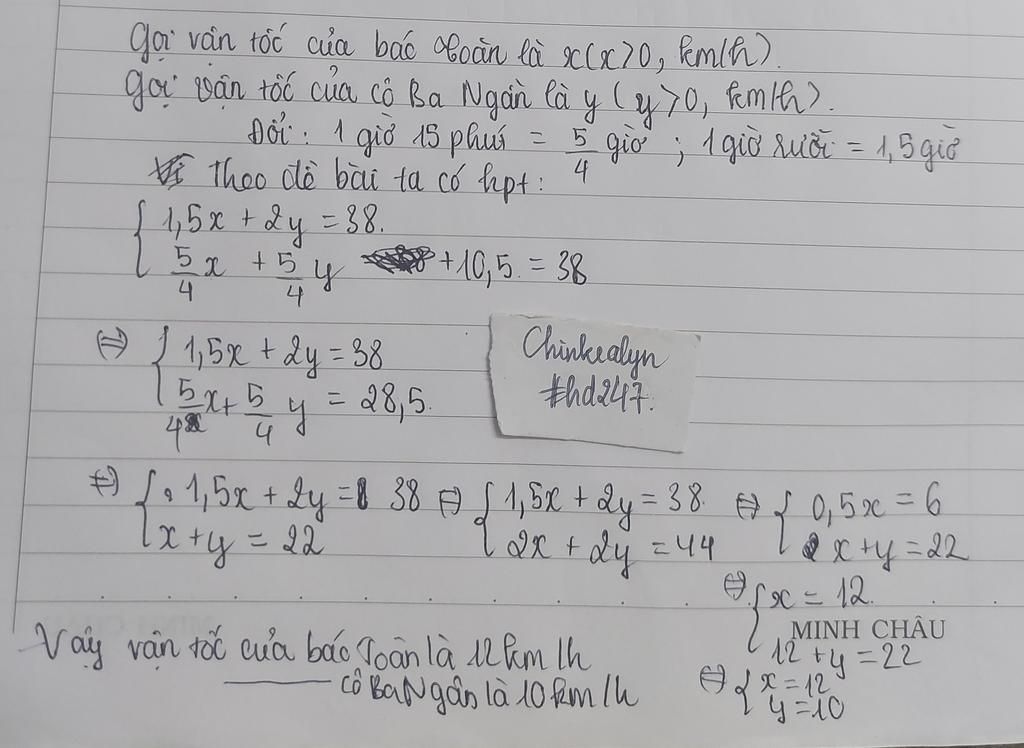 Gọi vận tốc của bác Toàn là x(x>0, km/h).
Gọi vận tốc của cô Ba Ngần là y (y>0, km/h).
Đổi: 1 giờ 15 phút = 5/4 giờ ; 1 giờ rưỡi = 1,5 giờ
Theo đề bài ta có hpt:
{ 1,5x + 2y = 38.
5/4 x + 5/4 y + 10,5 = 38
⇔ { 1,5x + 2y = 38
5/4 x + 5/4 y = 28,5.
Chinkealyn
#hd247.
⇔ { 1,5x + 2y = 38 ⇔ { 1,5x + 2y = 38. ⇔ { 0,5x = 6
x + y = 22 2x + 2y = 44 x + y = 22
⇔ { x = 12.
MINH CHÂU
12 + y = 22
⇔ { x = 12
y = 10
Vậy vận tốc của bác Toàn là 12 km/h
cô Ba Ngần là 10 km/h